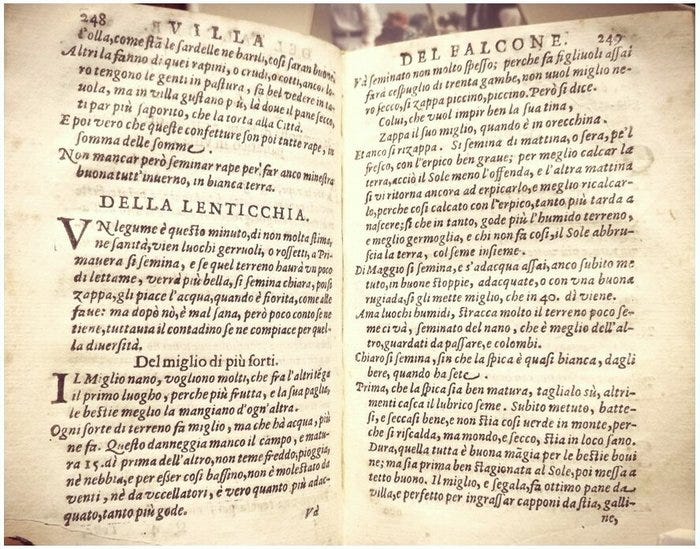 248
VILLA
l'olla, come stà le sardelle ne barili, così saran buone.
Altri la fanno di quei rapini, o crudi, o cotti, anco: lo-
ro tengono le genti in pastura, fa bel vedere in ta-
uola, ma in villa gustano più, là doue il pane secco,
ti par più saporito, che la torta alla Città.
E poi vero che queste confetture son poi tutte rape, in
somma delle somme.
Non mancar però seminar rape per far anco minestra
buona tutt'inuerno, in bianca terra.
DELLA LENTICCHIA.
VN legume è questo minuto, di non molta stima,
ne sanità, vien luochi gerruoli, o rossetti, a Pri-
mauera si semina, e se quel terreno haurà vn poco
di lettame, verrà più bella, si semina chiara, poi si
zappa, gli piace l'acqua, quando è fiorita, come alle
faue: ma dopò nò, è mal sana, però poco conto se ne
tiene, tuttauia il contadino se ne compiace per quel-
la diuersità.
Del miglio di più sorti.
IL Miglio nano, vogliono molti, che fra l'altri tēga
il primo luogho, perche più frutta, e la sua paglia,
le bestie meglio la mangiano d'ogn'altra.
Ogni sorte di terreno fa miglio, ma che hà acqua, più
ne fa. Questo danneggia manco il campo, e matu-
ra 15. dì prima dell'altro, non teme freddo, pioggia,
nè nebbia, e per esser così bassino, non è molestato da
venti, nè da vccellatori, è vero quanto più adac-
quato, tanto più gode.
Và
DEL FALCONE.
249
Và seminato non molto spesso; perche fa figliuoli assai
farà cespuglio di trenta gambe, non vuol miglio ne-
ro secco, si zappa piccino, piccino. Però si dice.
Colui, che vuol impir ben la sua tina,
Zappa il suo miglio, quando è in orecchina.
Et anco si rizappa. Si semina di mattina, o sera, pe'l
fresco, con l'erpico ben graue; per meglio calcar la
terra, acciò il Sole meno l'offenda, e l'altra mattina
si vi ritorna ancora ad erpicarlo, e meglio ricalcar-
lo, perche così calcato con l'erpico, tanto più tarda a
nascere; sì che in tanto, gode più l'humido terreno,
e meglio germoglia, e chi non fa così, il Sole abbru-
scia la terra, col seme insieme.
Di Maggio si semina, e s'adacqua assai, anco subito me
tuto, in buone stoppie, adacquate, o con vna buona
rugiada, si gli mette miglio, che in 40. dì viene.
Ama luochi humidi, stracca molto il terreno poco se-
me ci và, seminato del nano, che è meglio dell'al-
tro, guardati da passare, e colombi.
Chiaro si semina, sin che la spica è quasi bianca, dagli
bere, quando ha sete.
Prima, che la spica sia ben matura, taglialo sù, altri-
menti casca il lubrico seme. Subito metuto, batte-
si, e seccasi bene, e non stia così verde in monte, per-
che si riscalda, ma mondo, e secco, stia in loco sano.
Dura, quella tutta è buona magia per le bestie boui
ne; ma sia prima ben stagionata al Sole, poi messa a
tetto buono. Il miglio, e segala, fà ottimo pane da
villa, e perfetto per ingrassar capponi da stia, galli-
ne,